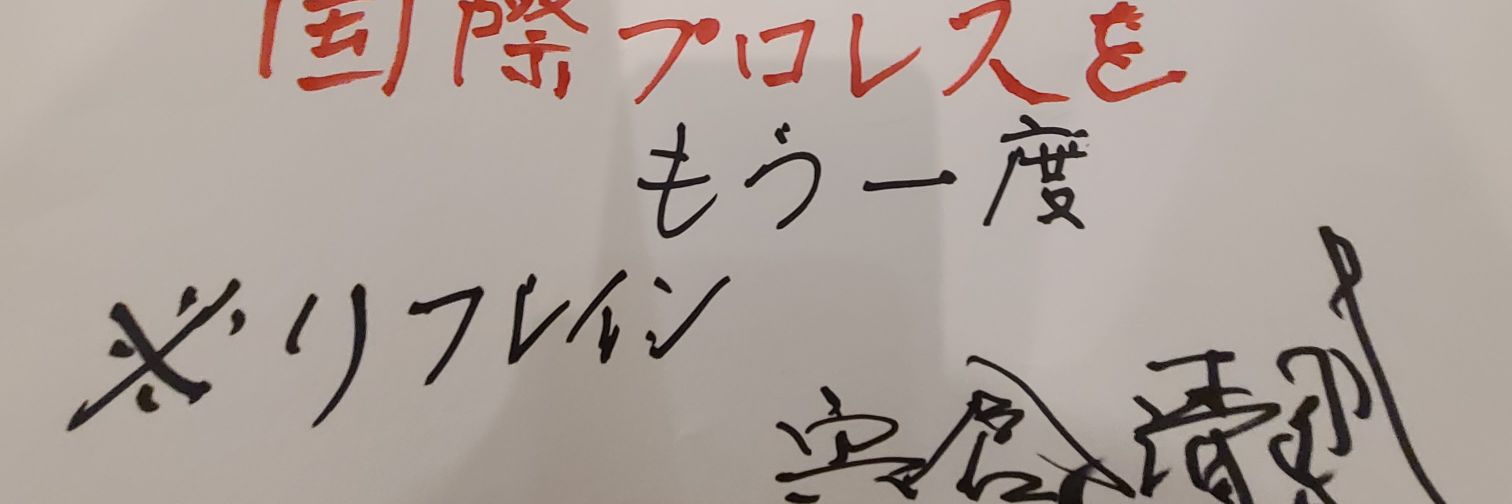 国際プロレスを
もう一度
※リフレイン